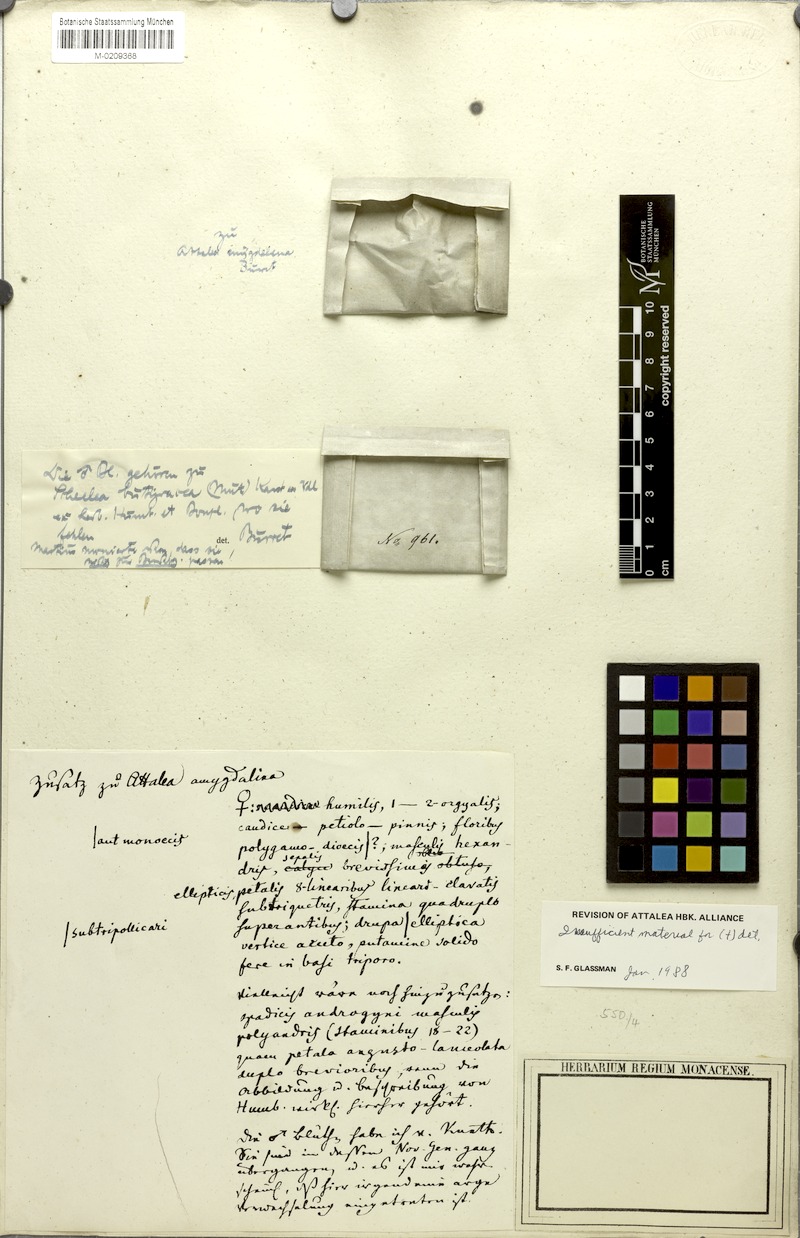 Botanische Staatssammlung München
M-0209368
zu
Attalea amygdalina
Burret
BOTANISCHE
STAATSSAMMLUNG
MÜNCHEN
copyright reserved
0 1 2 3 4 5 6 7 8 9 10
cm
Die ♂ Bl. gehören zu
Scheelea butyracea (Mut.) Karst.
ex herb. Humb. et Bonpl., wo sie
fehlen
det. Burret
No 961.
Zusatz zu Attalea amygdalina
♀: humilis, 1 — 2-orgyalis;
caudice — petiolo — pinnis; floribus
|aut monoecis
polygamo-dioecis|?; masculis hexan-
dris, sepalis brevissimis obtuso,
ellipticis, petalis 8-linearibus lineari-clavatis
subtriquetris, stamina quadruplo
|subtripollicari
superantibus; drupa|elliptica
vertice acuto, putamine solido
fere in basi triporo.
Vielleicht wäre noch hinzuzusetzen:
spadicis androgyni masculis
polyandris (staminibus 18–22)
quam petala angusto-lanceolata
duplo brevioribus, wenn die
Abbildung u. Beschreibung von
Humb. wirkl. hierher gehört.
Die ♂ Blüthe habe ich v. Kunth.
Sie sind in dessen Nov. Gen. ganz
übergangen, u. es ist mir wahr-
scheinl., daß hier irgend eine arge
Verwechselung eingetreten ist.
REVISION OF ATTALEA HBK. ALLIANCE
Insufficient material for (+) det.
S. F. GLASSMAN Jan. 1988
550/4
HERBARIUM REGIUM MONACENSE.